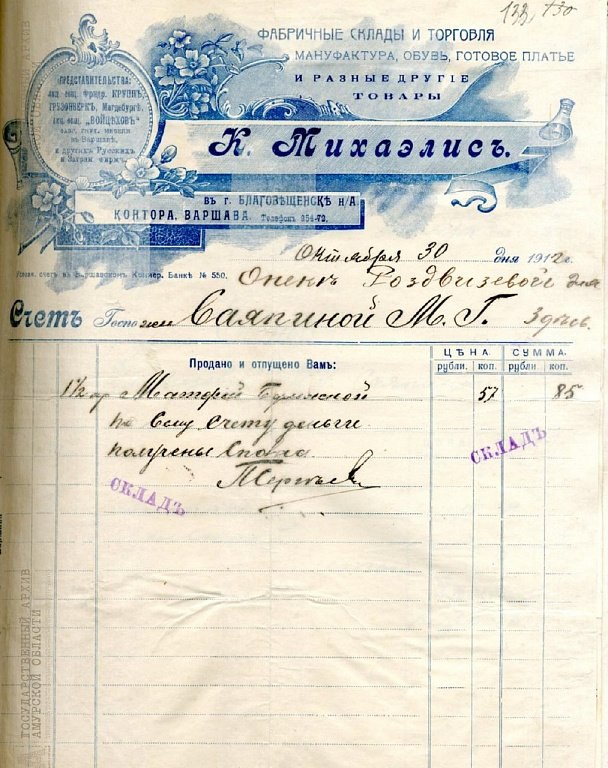 133, 130
ФАБРИЧНЫЕ СКЛАДЫ И ТОРГОВЛЯ
МАНУФАКТУРА, ОБУВЬ, ГОТОВОЕ ПЛАТЬЕ
И РАЗНЫЕ ДРУГІЕ
ТОВАРЫ
ПРЕДСТАВИТЕЛЬСТВА:
акц. общ. Фридр. КРУППЪ,
ГРУЗОНВЕРКЪ, Магдебургъ,
акц. общ. „ВОЙЦѢХОВЪ"
въ Варшавѣ,
и другихъ Русскихъ
и Загран. фирмъ.
К. Михаэлисъ.
въ г. БЛАГОВѢЩЕНСКѢ н/А.
КОНТОРА. ВАРШАВА. Телефонъ 254-72.
Октября 30 дня 1912 г.
Условн. счетъ въ Варшавскомъ Коммер. Банкѣ № 550.
Опекѣ
Счетъ Госпо же Саяпиной М. Г. Здѣсь
Продано и отпущено Вамъ:
ЦѢНА. СУММА.
рубли. коп. рубли коп.
1½ ар 57 85
по сему счету деньги
получены сполна
СКЛАДЪ
СКЛАДЪ
ГОСУДАРСТВЕННЫЙ АРХИВ
АМУРСКОЙ ОБЛАСТИ